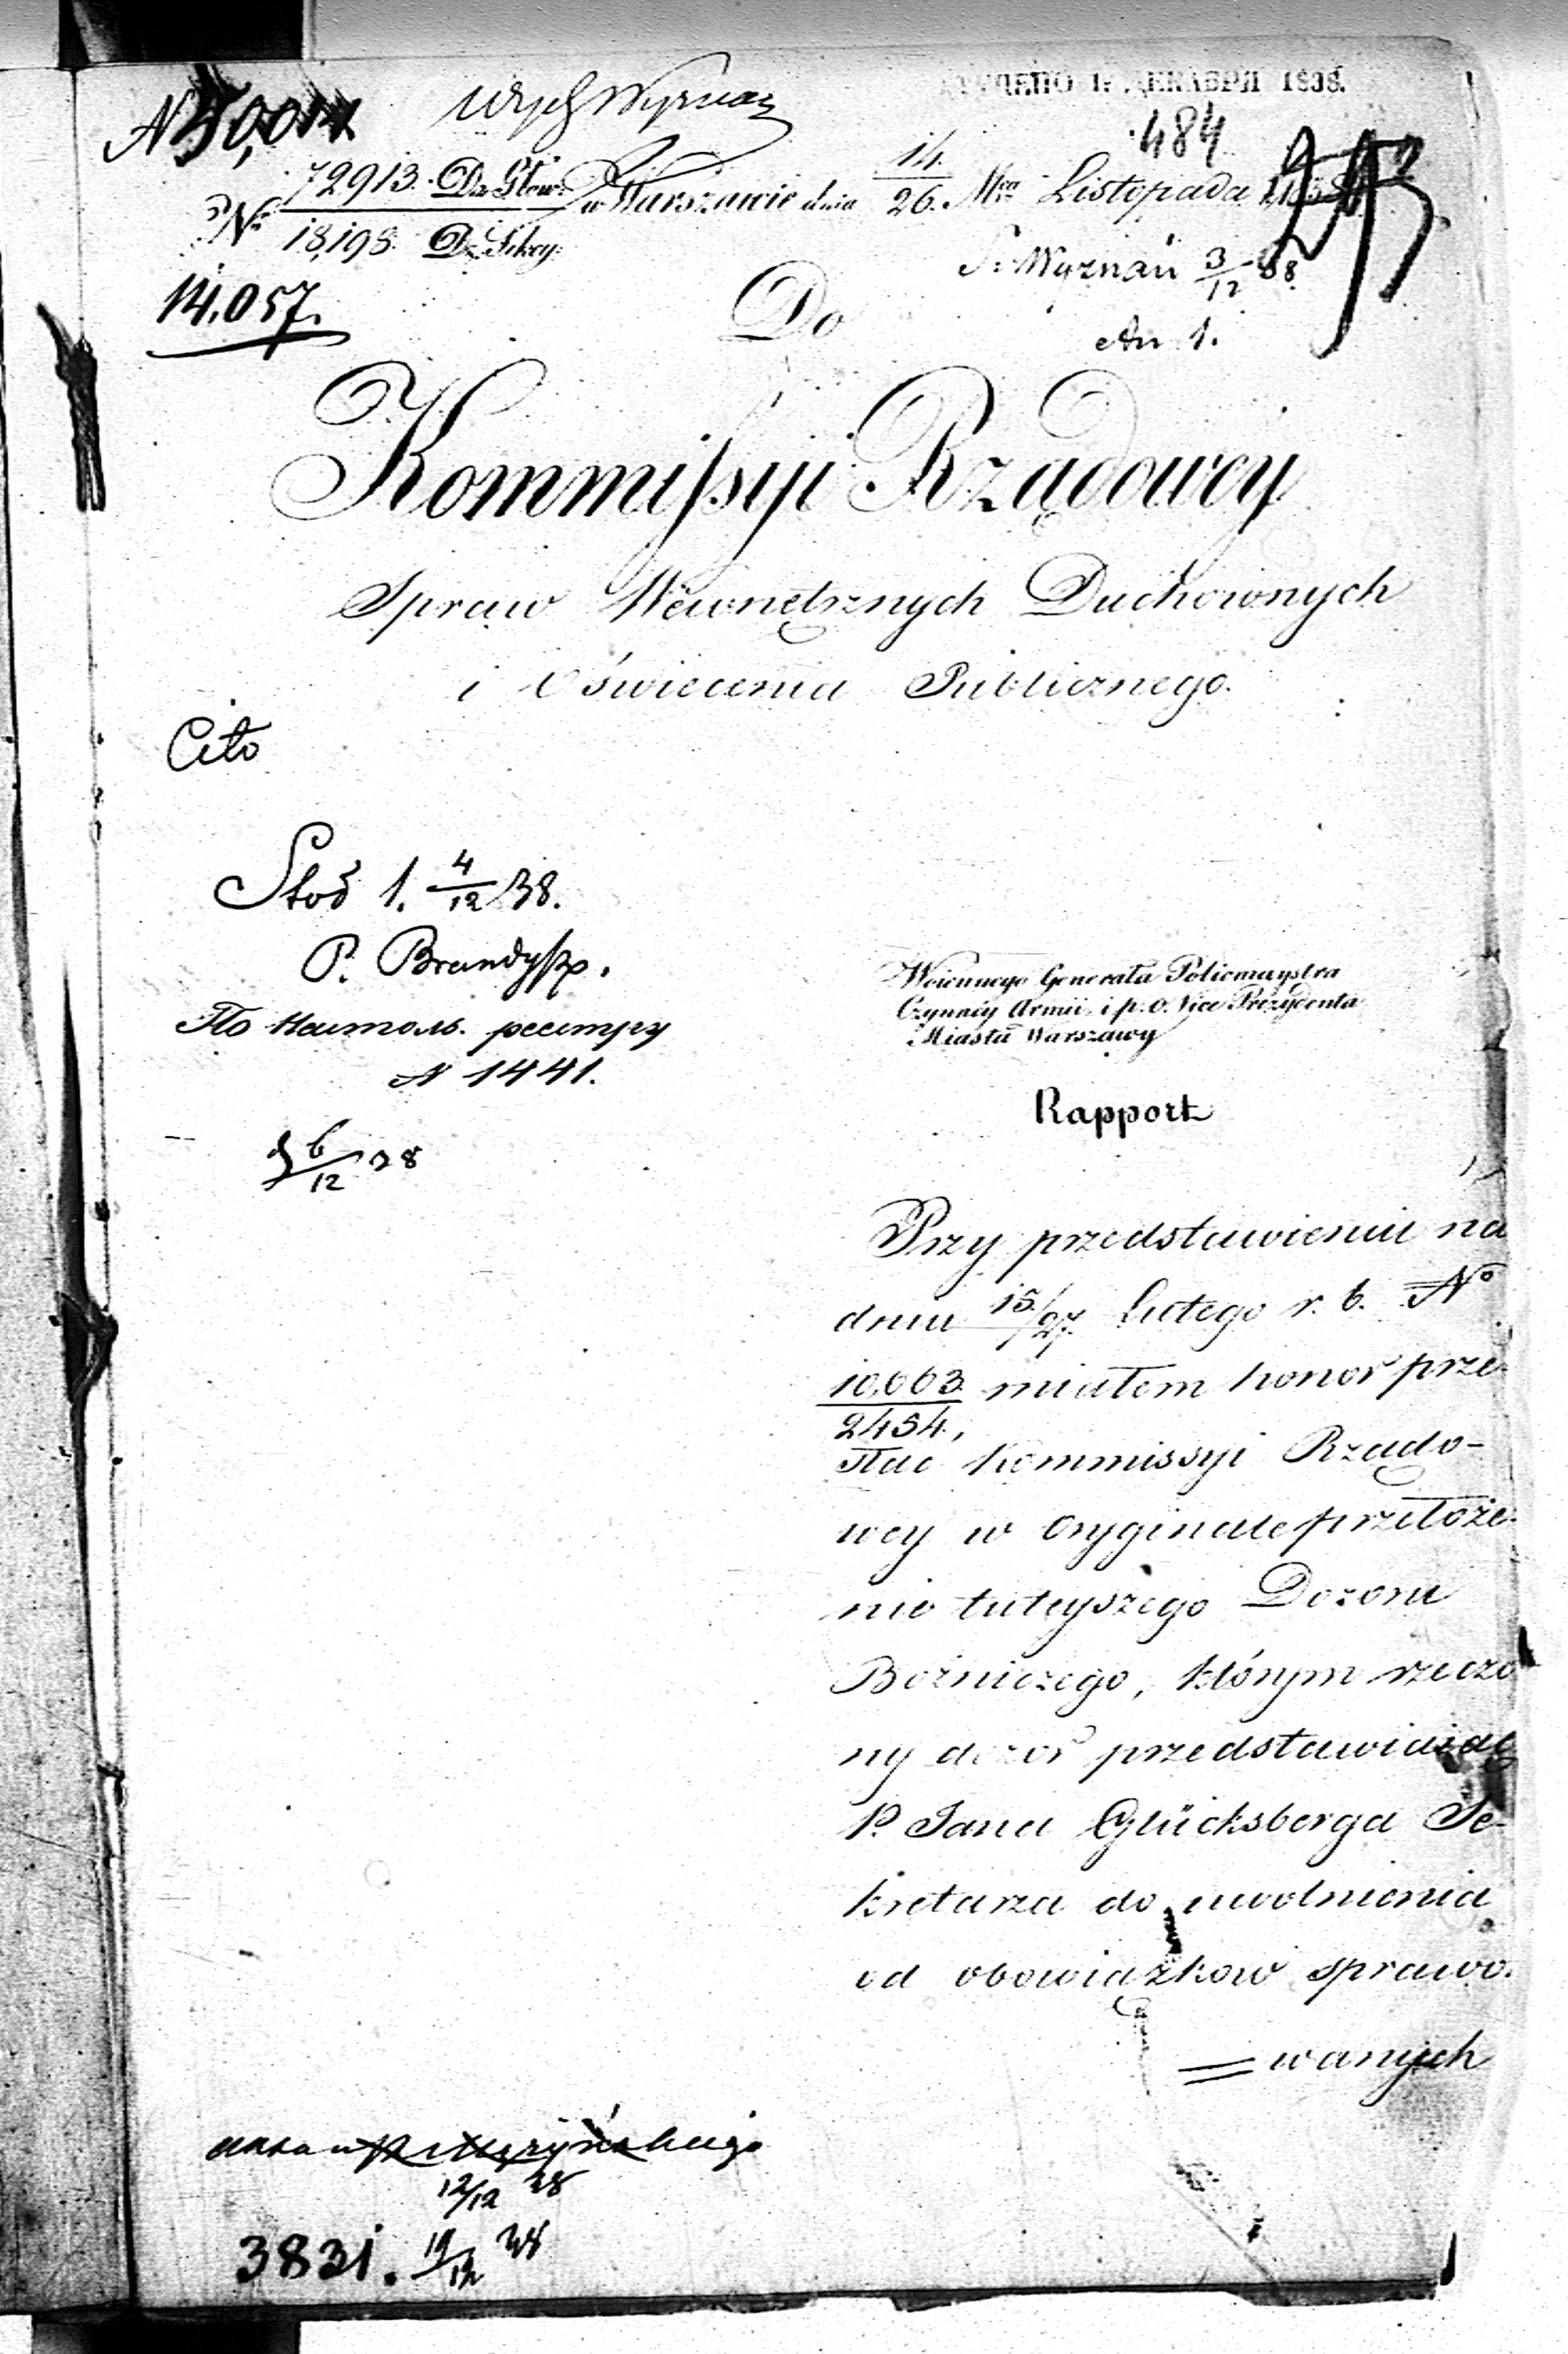 ДЕКАБРЯ 1838.
484
72913. Dz. Głow:
No 18,198. Dz. Sekcy:
w Warszawie dnia 14/26. Mca Listopada
Wyznań 3/12 38
14.057.
Do
An 1.
Kommissyi Rządowey
Spraw Wewnętrznych Duchownych
i Oświecenia Publicznego.
Cito
4/12 38.
P.
По Настоль. реестру
N 1441.
6/12 38
Woiennego Generała Policmaystra
Czynney Armii i p. o. Vice Prezydenta
Miasta Warszawy
Rapport
Przy przedstawieniu na
dniu 15/27. Lutego r. b. No
10,663./2454, miałem honor prze-
słać Kommissyi Rządo-
wey w Oryginale przełoże-
nie tuteyszego Dozoru
Bożniczego, którym rzeczo
ny dozór przedstawiaiąc
P. Jana Glücksberga Se-
kretarza do uwolnienia
od obowiązkow sprawo-
= wanych
12/12 38
3831. 19/12 38